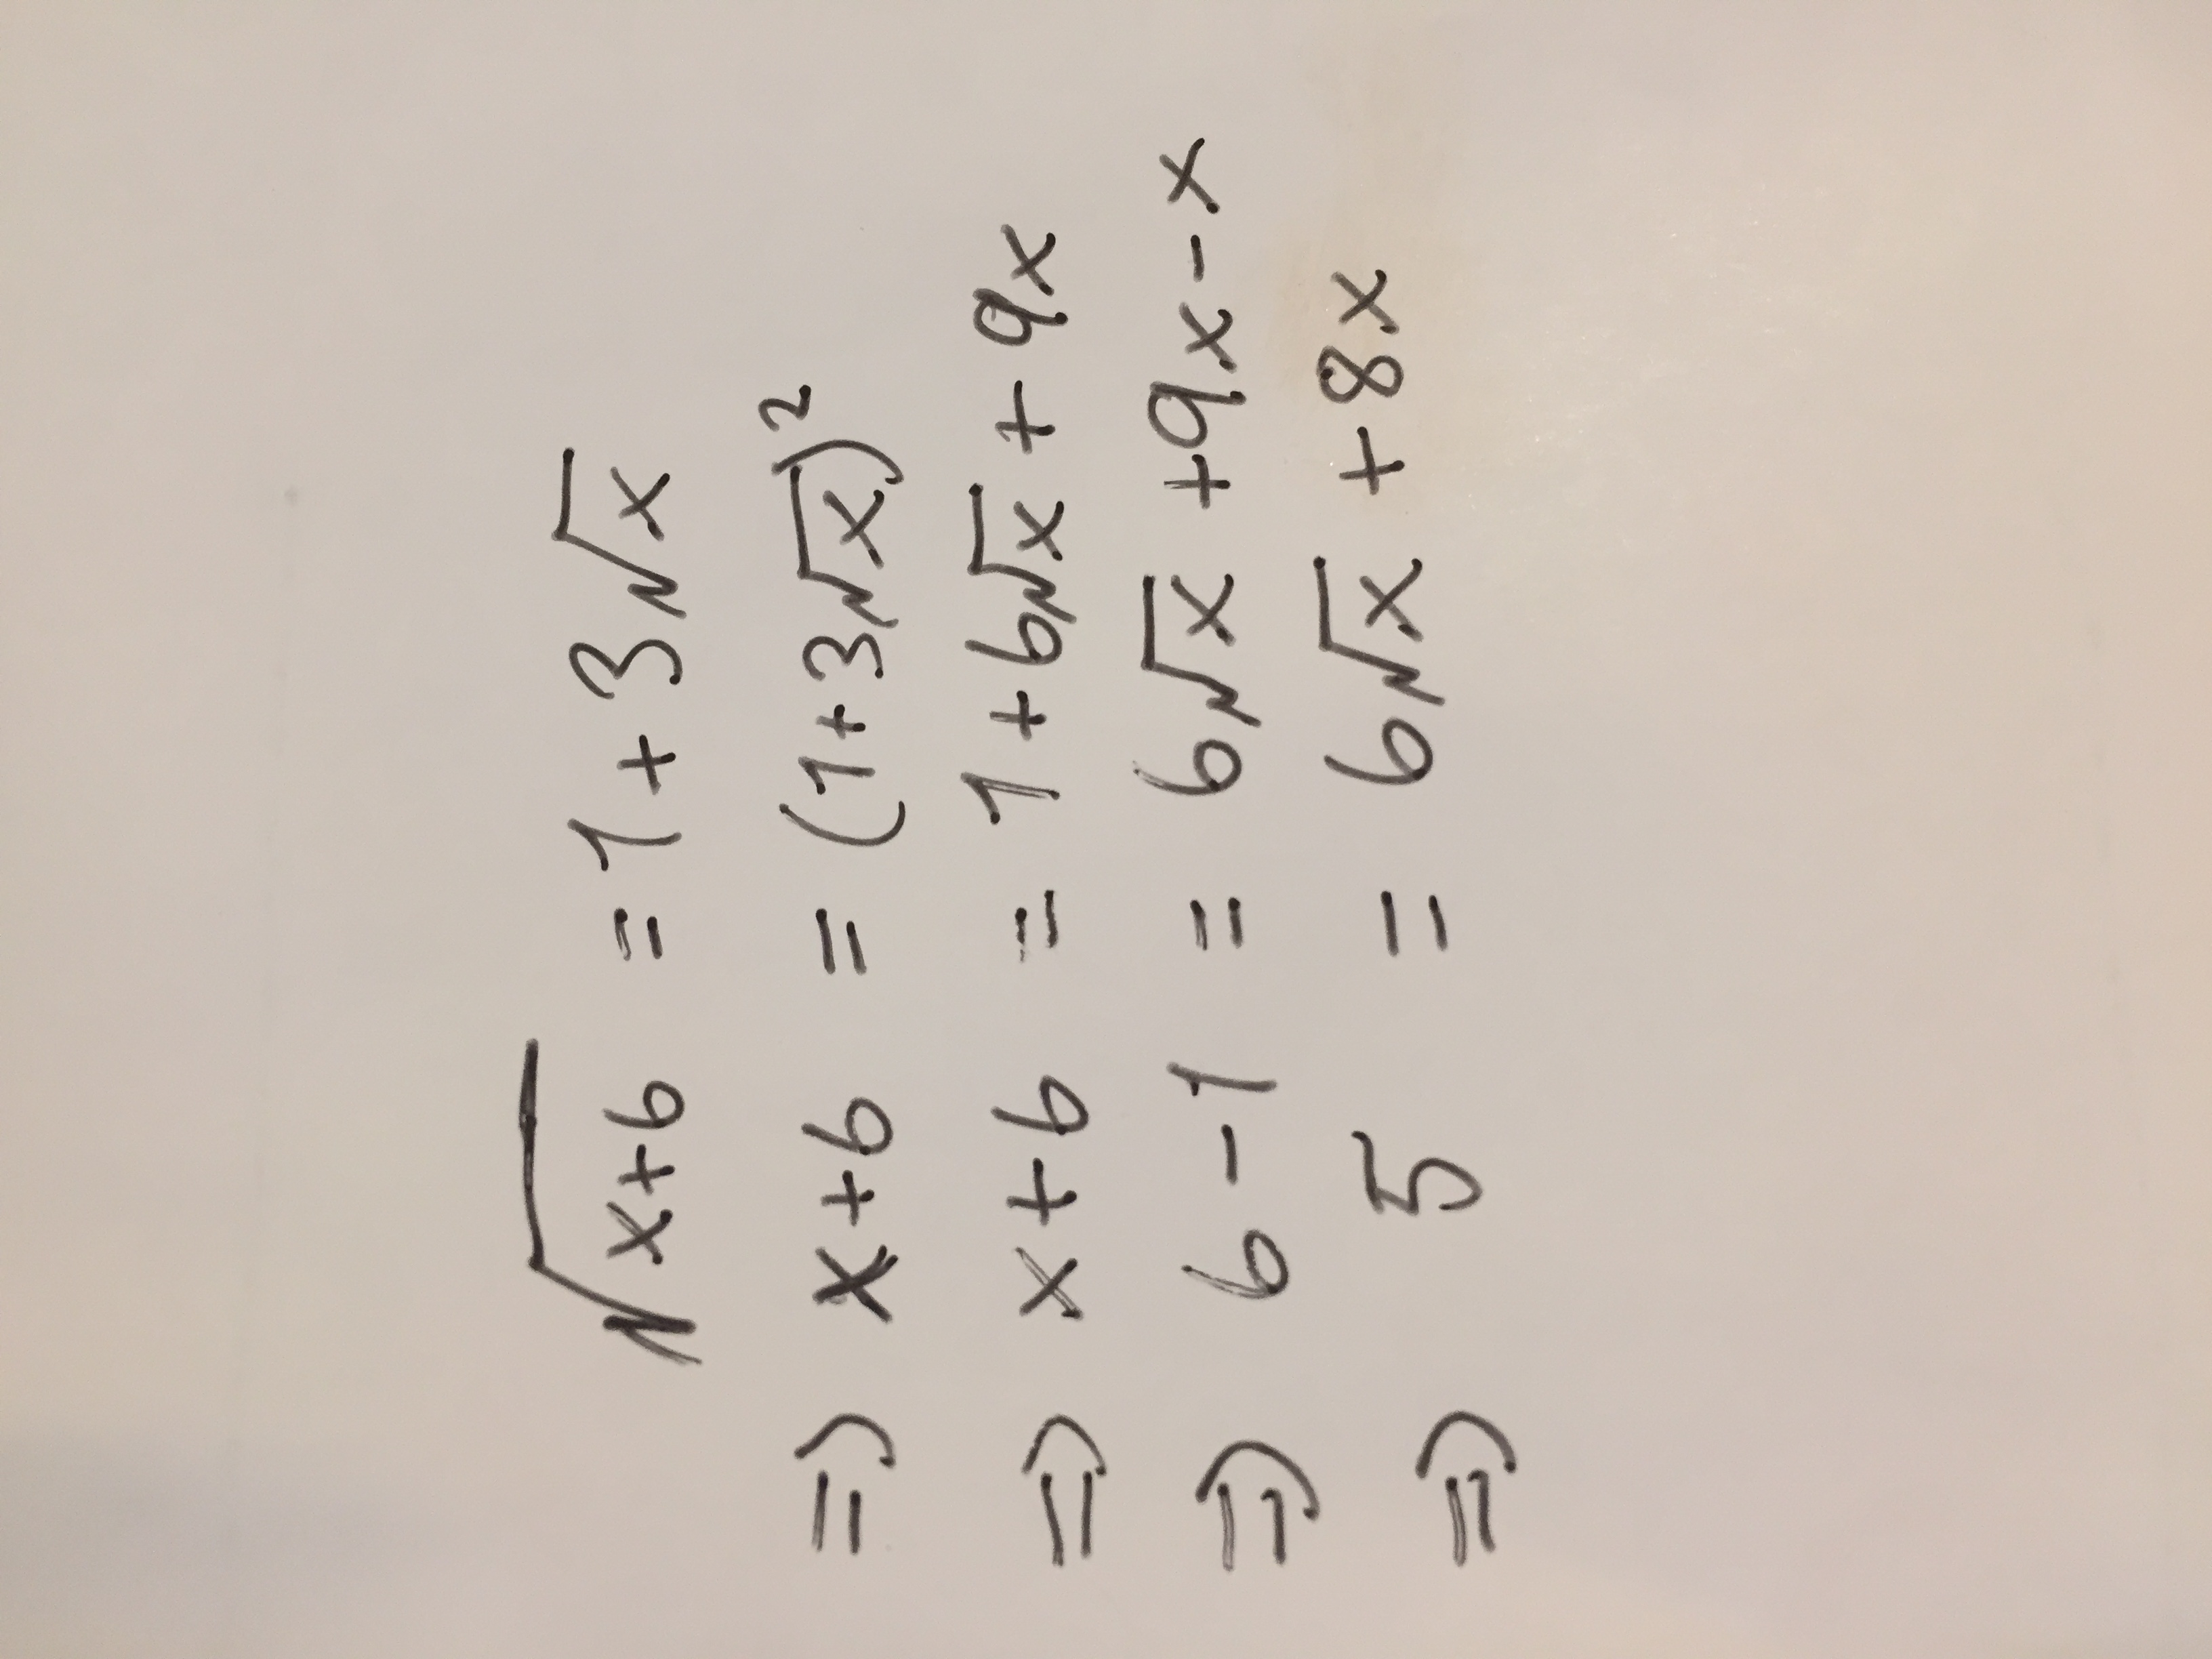 √(x+6) = 1 + 3√x
⇒ x+6 = (1+3√x)²
⇒ x+6 = 1+6√x + 9x
⇒ 6-1 = 6√x +9x-x
⇒ 5 = 6√x +8x